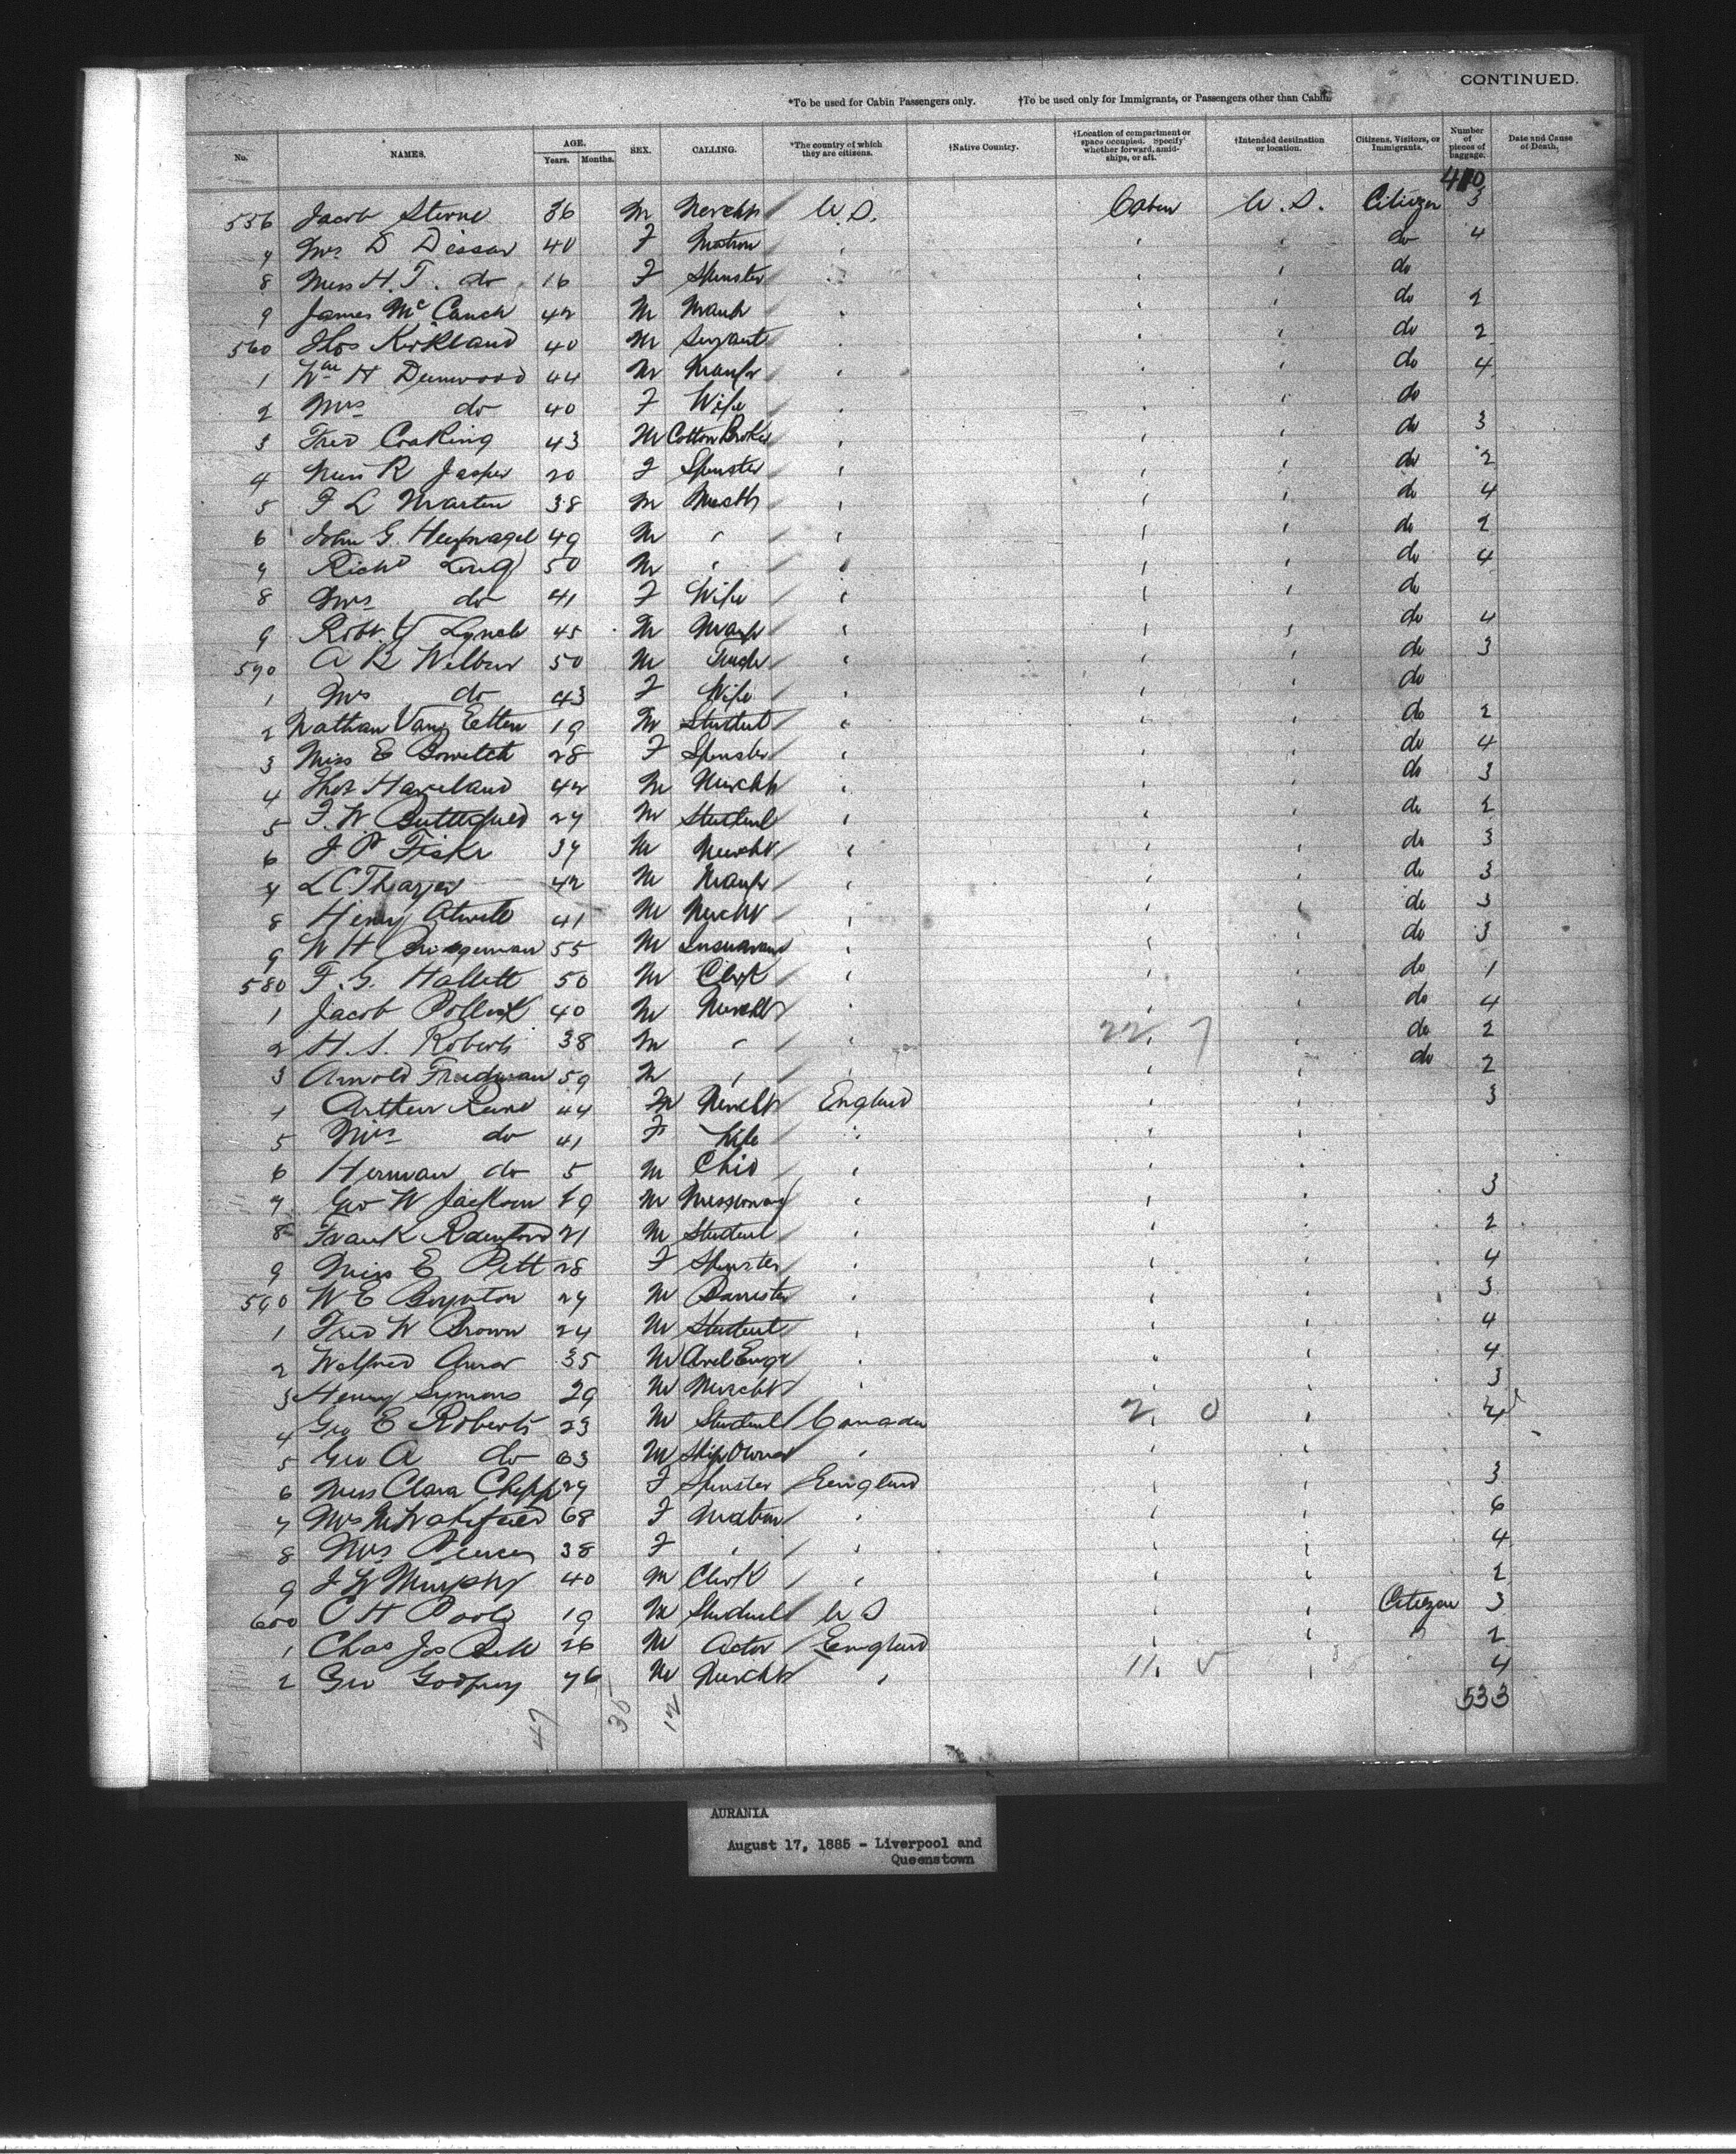 CONTINUED.
*To be used for Cabin Passengers only. †To be used only for Immigrants, or Passengers other than Cabin.
No. NAMES. AGE. Years. Months. SEX. CALLING. *The country of which they are citizens. †Native Country. †Location of compartment or space occupied. Specify whether forward, amidships, or aft. †Intended destination or location. Citizens, Visitors, or Immigrants. Number of pieces of baggage. Date and Cause of Death.
410
556 Jacob Sterne 36 M Mercht U.S. Cabin U.S. Citizen 3
7 Mrs D Dessar 40 F Matron do 4
8 Miss H.T. do 16 F Spinster do
9 James McCanch 42 M Manfr do 2
560 Thos Kirkland 40 M Servant do 2
1 Wm H Dunwood 44 M Manfr do 4
2 Mrs do 40 F Wife do
3 Fred Coaking 43 M Cotton Broker do 3
4 Miss R Jasper 20 F Spinster do 2
5 F L Marten 38 M do 4
6 John G. 49 M do 2
7 Richd Long 50 M do 4
8 Mrs do 41 F Wife do
9 Robt Y Lynch 45 M Manfr do 4
570 A B Wilbur 50 M do 3
1 Mrs do 43 F Wife do
2 Nathan Van Etten 19 M Student do 2
3 Miss E Bowditch 28 F Spinster do 4
4 Thos Haviland 42 M Mercht do 3
5 F.W Butterfield 27 M Student do 2
6 J P Fiske 37 M Mercht do 3
7 L C Thayer 42 M Manfr do 3
8 Henry 41 M Mercht do 3
9 W H Bridgeman 55 M Insurance do 3
580 F. G. Hallett 50 M Clerk do 1
1 Jacob Pollock 40 M Mercht do 4
2 H. S. Roberts 38 M 22 7 do 2
3 Arnold Friedman 59 M do 2
4 Arthur 44 M Mercht England 3
5 Mrs do 41 F Wife
6 Herman do 5 M Child
7 Geo W Jackson 19 M Missionary 3
8 Frank Rainford 21 M Student 2
9 Miss E Pitt 28 F Spinster 4
590 W E Boynton 27 M Barrister 3
1 Fred W Brown 24 M Student 4
2 Wilfred 35 M Civil Engr 4
3 Henry Symons 29 M Mercht 3
4 Geo E Roberts 23 M Student Canada 2 0 4
5 Geo A do 63 M Ship Owner
6 Miss Clara 27 F Spinster England 3
7 Mrs M Wakefield 68 F Matron 6
8 Mrs 38 F 4
9 J W Murphy 40 M Clerk 2
600 C H Poole 19 M Student U S Citizen 3
1 Chas Js Bell 26 M Actor England 2
2 Geo Godfrey 76 M Mercht 11 5 4
47 35 12 533
AURANIA
August 17, 1885 - Liverpool and
Queenstown